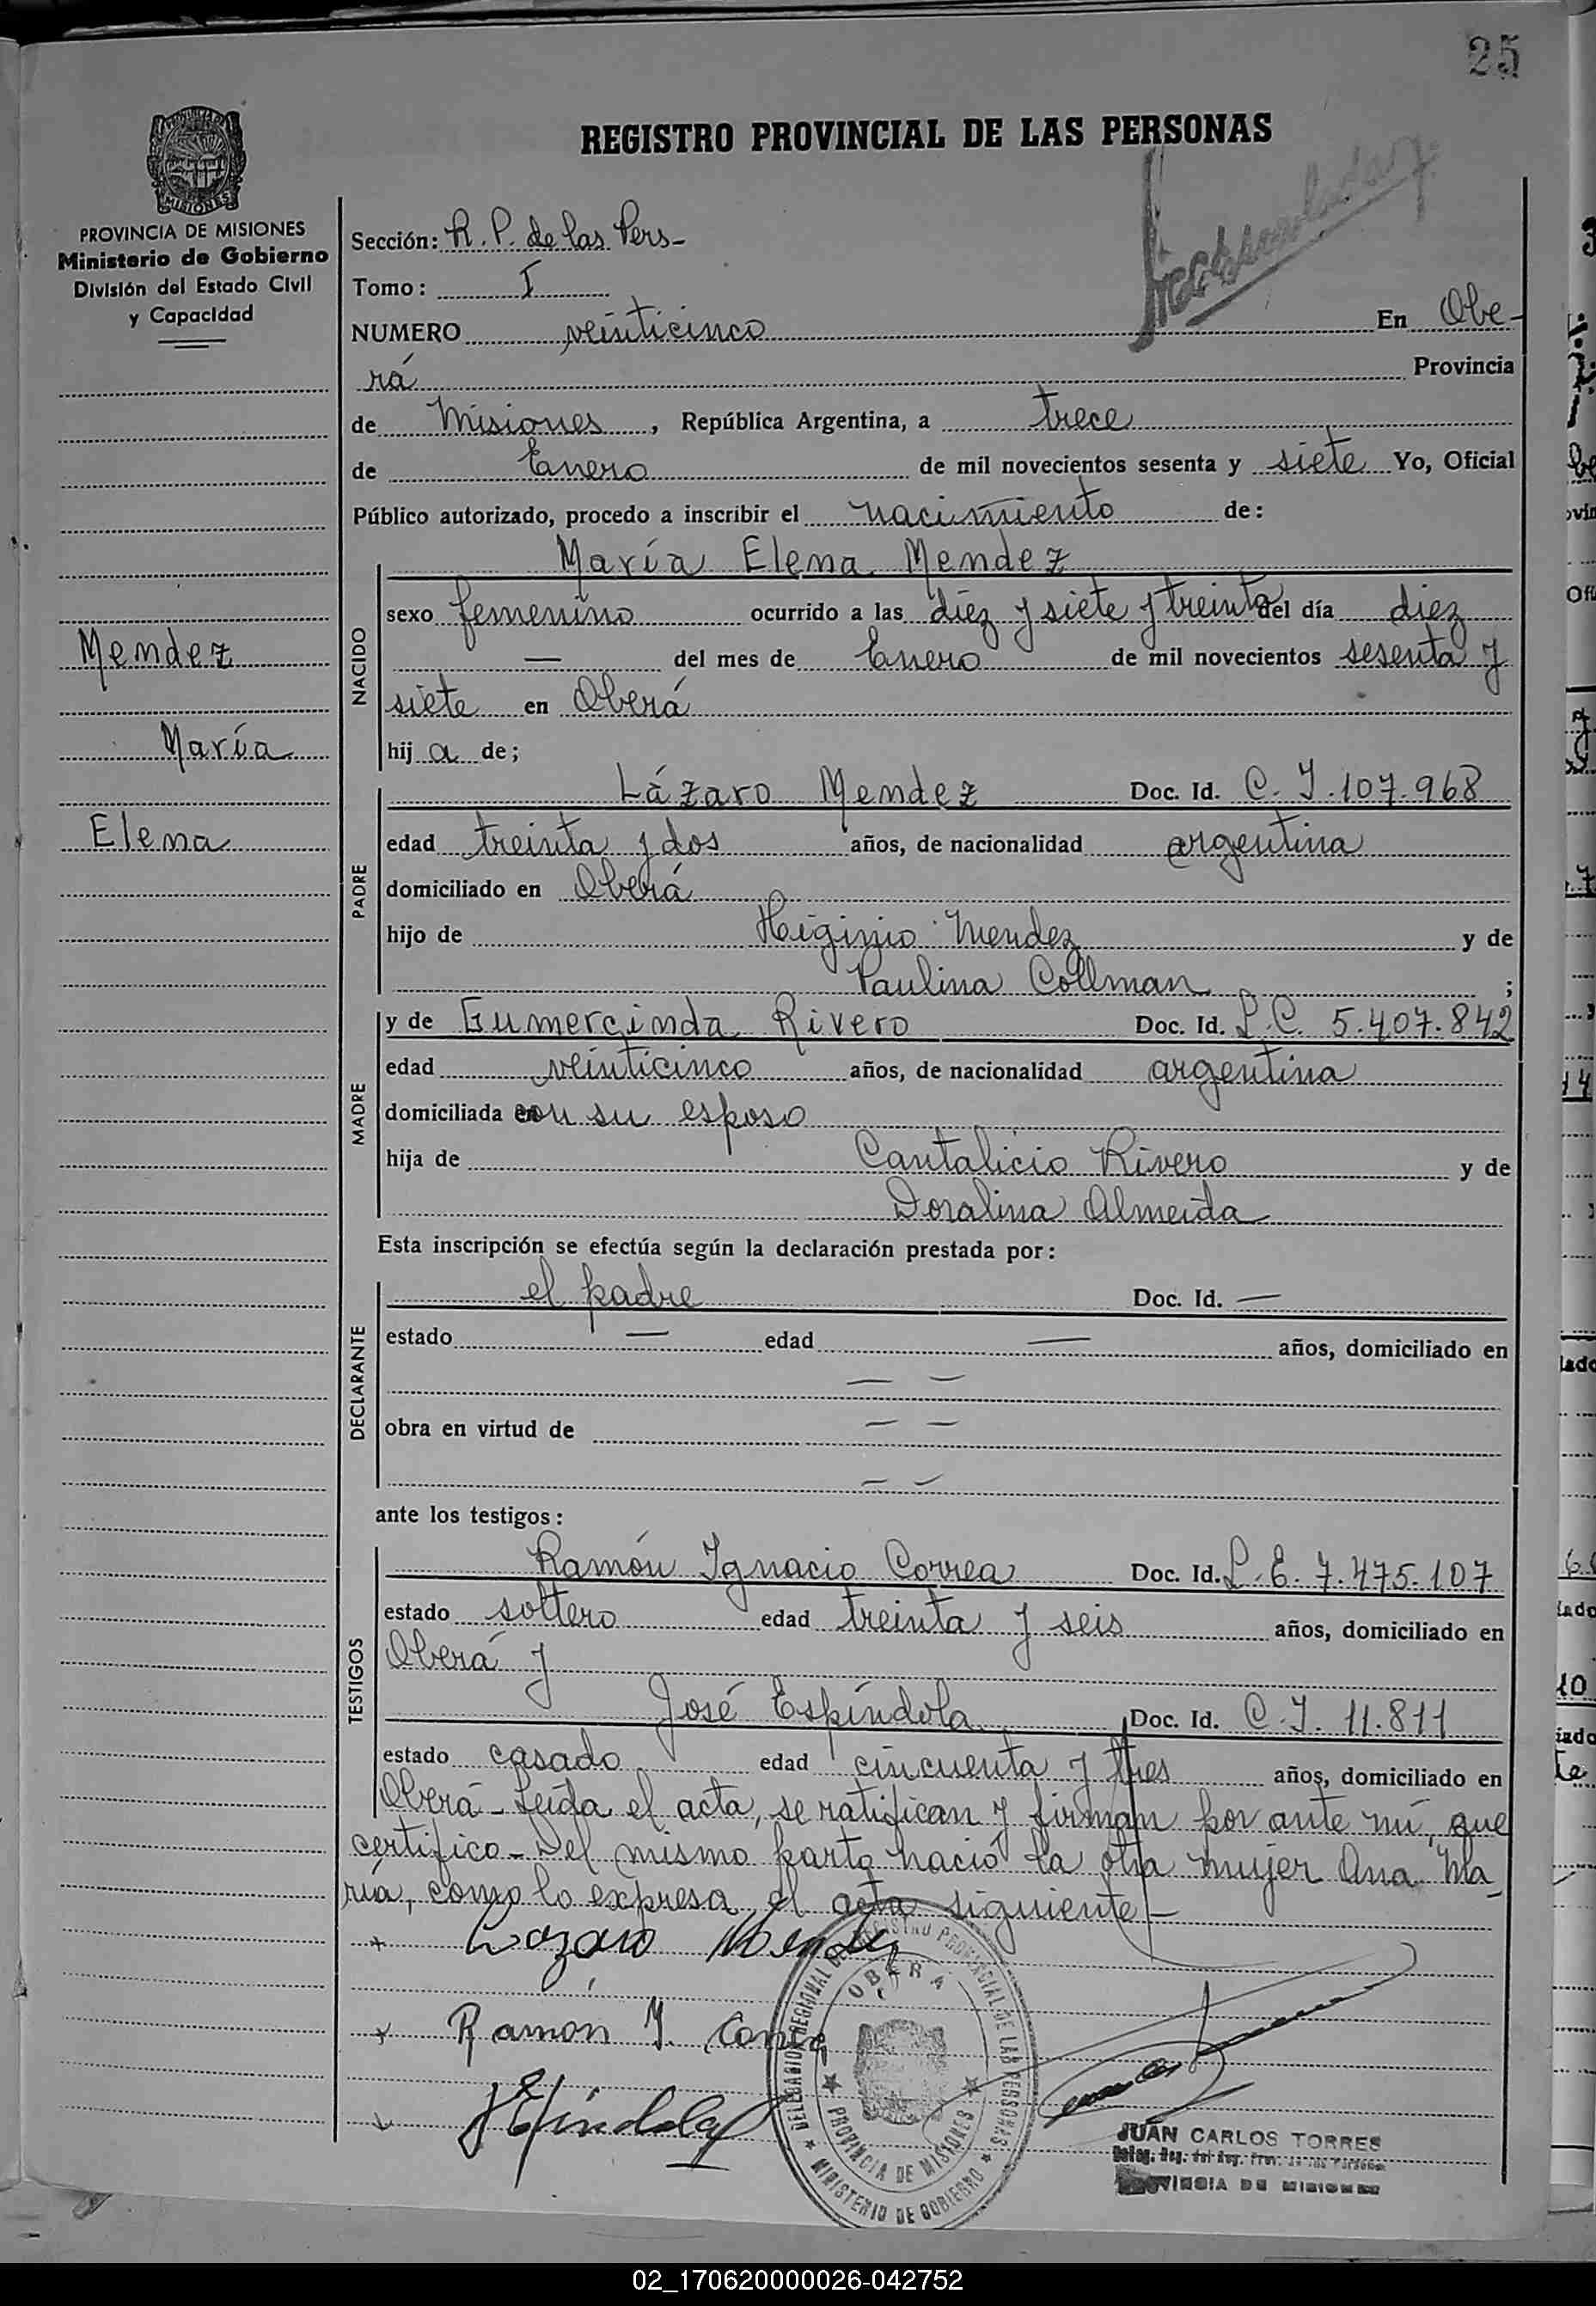 25
REGISTRO PROVINCIAL DE LAS PERSONAS
MISIONES
PROVINCIA DE MISIONES
Ministerio de Gobierno
División del Estado Civil
y Capacidad
Sección: R. P. de las Pers-
Tomo: I
NUMERO veinticinco En Obe-
rá Provincia
de Misiones, República Argentina, a trece
de Enero de mil novecientos sesenta y siete Yo, Oficial
Público autorizado, procedo a inscribir el nacimiento de:
NACIDO
María Elena Mendez
sexo femenino ocurrido a las diez y siete y treinta del día diez
— del mes de Enero de mil novecientos sesenta y
siete en Oberá
hij a de;
Mendez
María
Elena
PADRE
Lázaro Mendez Doc. Id. C. I. 107.968
edad treinta y dos años, de nacionalidad argentina
domiciliado en Oberá
hijo de Higinio Mendez y de
Paulina Collman ;
MADRE
y de Gumercinda Rivero Doc. Id. L.C. 5.407.842
edad veinticinco años, de nacionalidad argentina
domiciliada con su esposo
hija de Cantalicio Rivero y de
Doralina Almeida
Esta inscripción se efectúa según la declaración prestada por:
DECLARANTE
el padre Doc. Id. —
estado — edad — años, domiciliado en
— —
obra en virtud de — —
— —
ante los testigos:
TESTIGOS
Ramón Ignacio Correa Doc. Id. L.E. 7.475.107
estado soltero edad treinta y seis años, domiciliado en
Oberá y
José Espíndola Doc. Id. C.I. 11.811
estado casado edad cincuenta y tres años, domiciliado en
Oberá - Leída el acta, se ratifican y firman por ante mí, que
certifico - Del mismo parto nació la otra mujer Ana Ma-
ría, como lo expresa el acta siguiente -
Lazaro Mendez
Ramón I. Correa
JEspíndola
DELEGACION REGIONAL DEL REGISTRO PROVINCIAL DE LAS PERSONAS
OBERA
PROVINCIA DE MISIONES
MINISTERIO DE GOBIERNO
JUAN CARLOS TORRES
PROVINCIA DE MISIONES
02_170620000026-042752